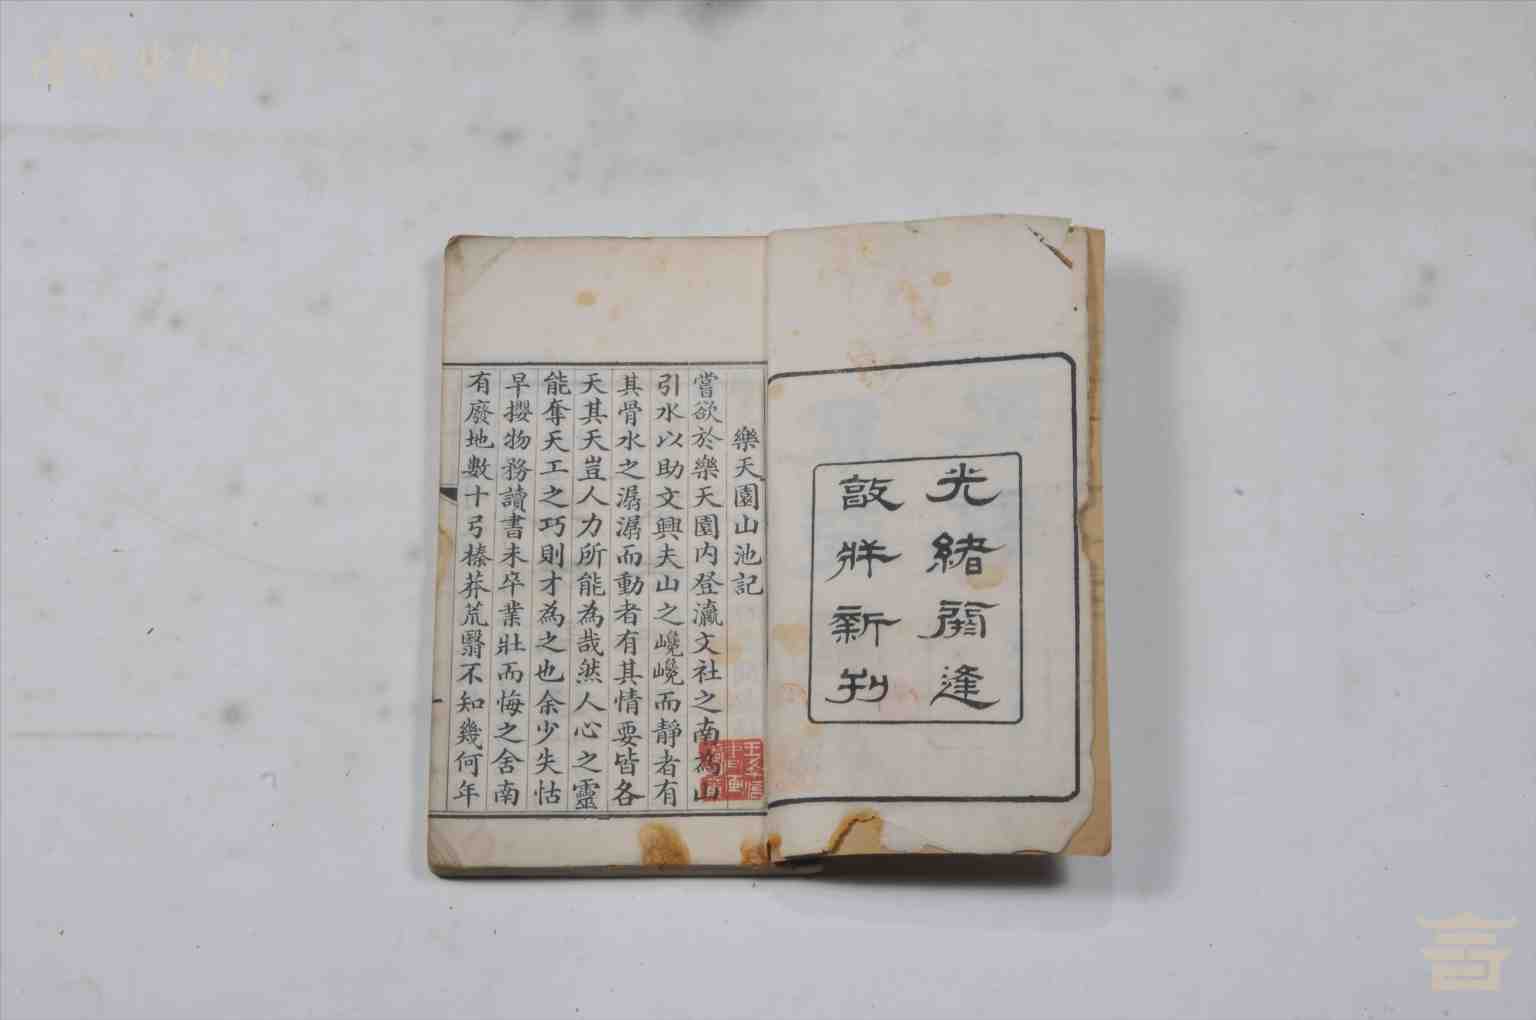 光緒閼逢
敦牂新刊
樂天園山池記
嘗欲於樂天園內登瀛文社之南為山
引水以助文興夫山之巉巉而靜者有
其骨水之潺潺而動者有其情要皆各
天其天豈人力所能為哉然人心之靈
能奪天工之巧則才為之也余少失怙
早攖物務讀書未卒業壯而悔之舍南
有廢地數十弓榛莽荒翳不知幾何年